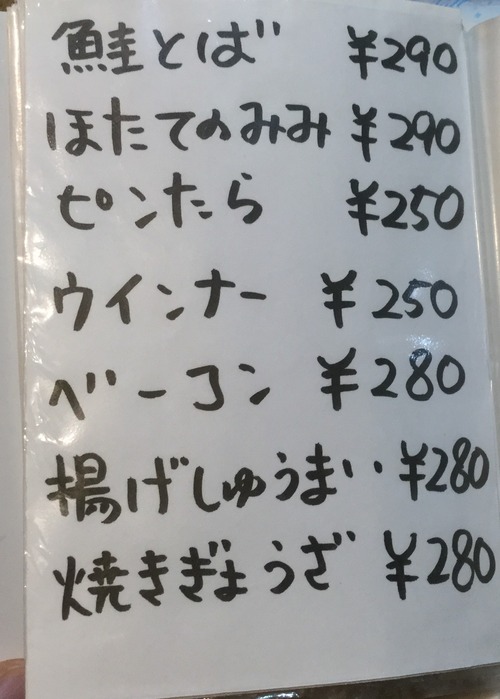 鮭とば ¥290
ほたてのみみ ¥290
ピンたら ¥250
ウインナー ¥250
ベーコン ¥280
揚げしゅうまい ¥280
焼きぎょうざ ¥280